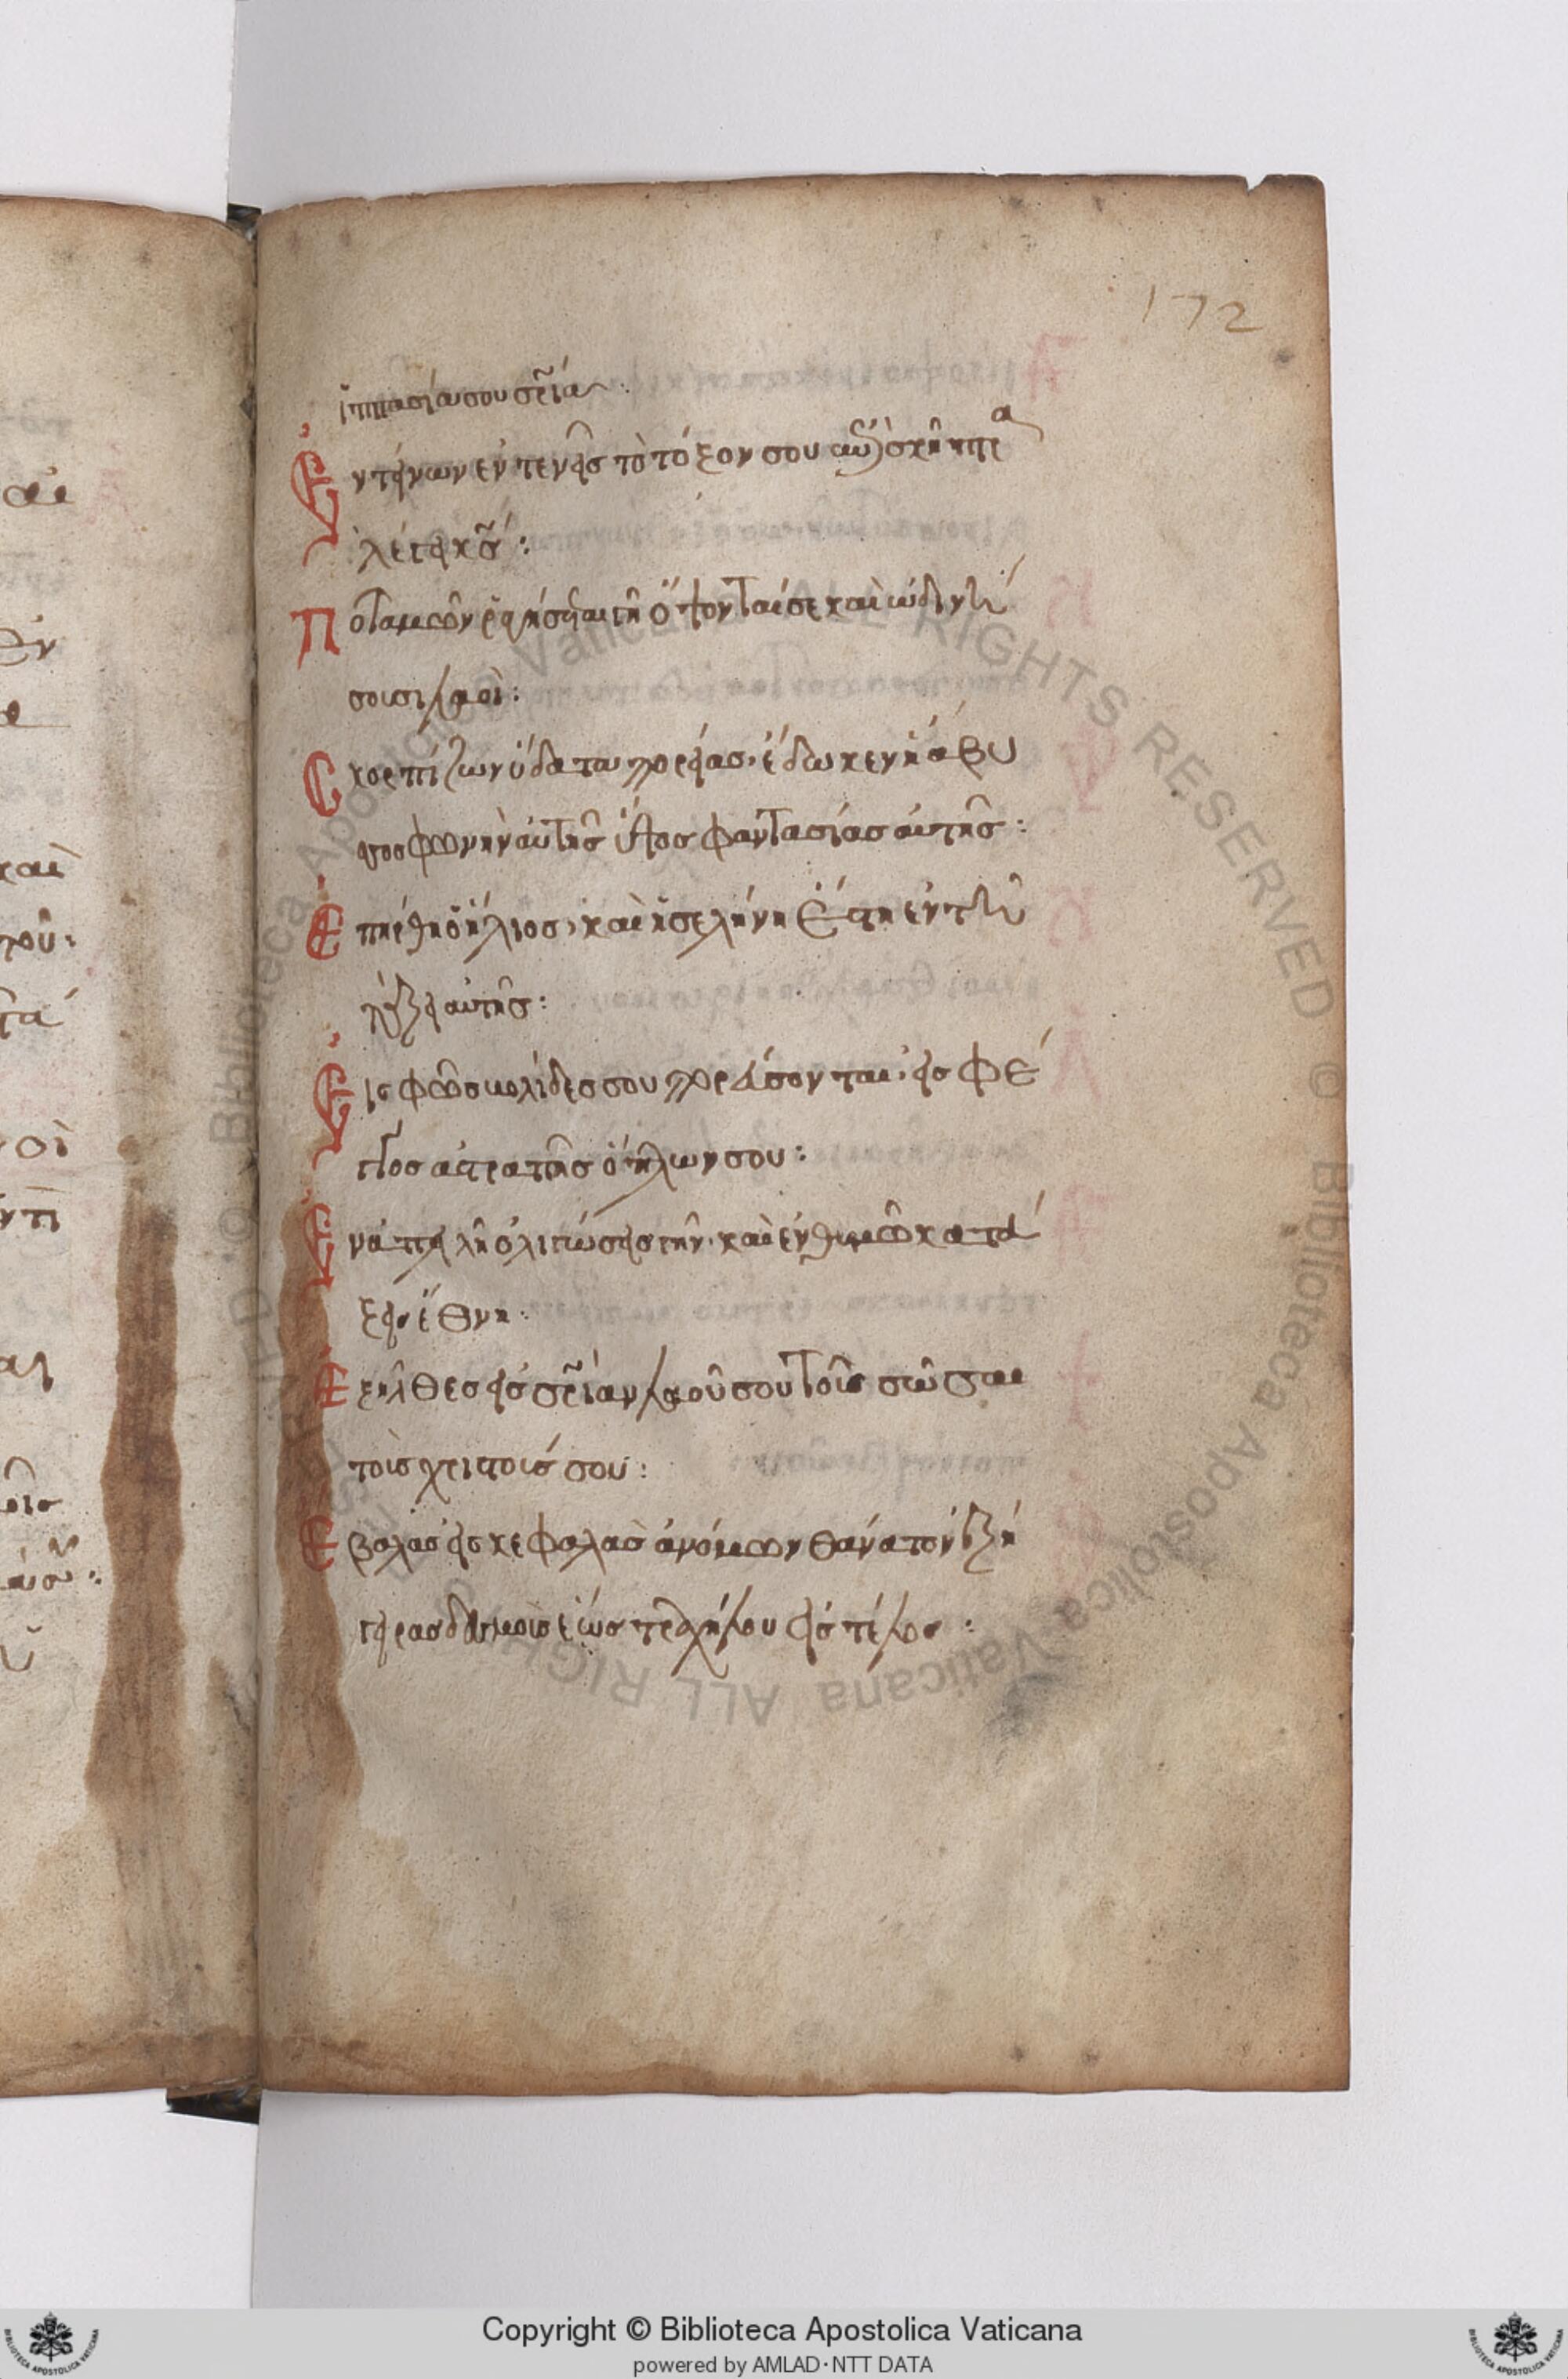 172
ἱππασία σου σ̅ρ̅ία:
Ἐντείνων ἐντενεῖς τὸ τόξον σου ἐπὶ σκῆπτρα
λέγει κ̅ς̅:
Ποταμῶν ῥαγήσεται γῆ ὄψονταί σε καὶ ὠδινή
σουσι λαοὶ:
Σκορπίζων ὕδατα πορείας· ἔδωκεν ἡ ἄβυ
σσος φωνὴν αὐτῆς ὕψος φαντασίας αὐτῆς:
Ἐπήρθη ὁ ἥλιος, καὶ ἡ σελήνη ἔστη ἐν τῇ
τάξει αὐτῆς:
Εἰς φῶς βολίδες σου πορεύσονται, εἰς φέ
γγος ἀστραπῆς ὅπλων σου:
Ἐν ἀπειλῇ ὀλιγώσεις γῆν· καὶ ἐν θυμῶ κατά
ξεις ἔθνη:
Ἐξῆλθες εἰς σ̅ρ̅ίαν λαοῦ σου τοῦ σῶσαι
τοὺς χριστούς σου:
Ἔβαλας εἰς κεφαλὰς ἀνόμων θάνατον ἐξή
γειρας δεσμοὺς ἕως τραχήλου εἰς τέλος:
Copyright © Biblioteca Apostolica Vaticana
powered by AMLAD·NTT DATA